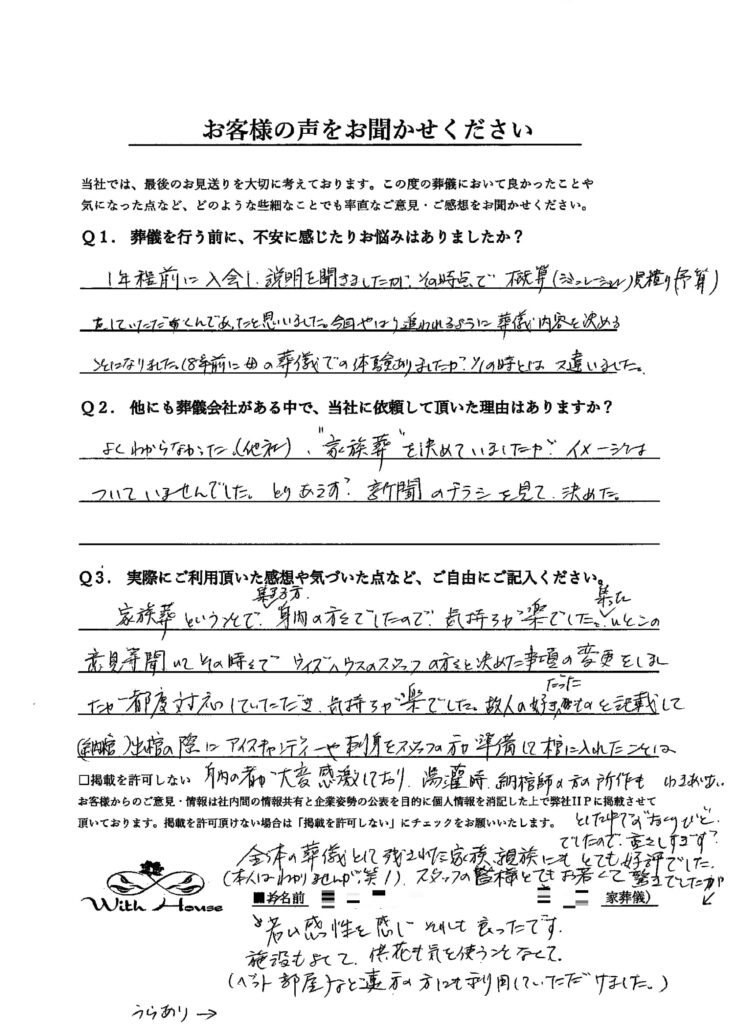 お客様の声をお聞かせください
当社では、最後のお見送りを大切に考えております。この度の葬儀において良かったことや
気になった点など、どのような些細なことでも率直なご意見・ご感想をお聞かせください。
Q1. 葬儀を行う前に、不安に感じたりお悩みはありましたか?
1年程前に入会し、説明を聞きましたが、その時点で概算(シミュレーション)見積り(予算)
をしていただ くんであったと思いました。今回やはり追われるように葬儀内容を決める
ことになりました。18年前に母の葬儀での体験ありましたが、その時とは 違いました。
Q2. 他にも葬儀会社がある中で、当社に依頼して頂いた理由はありますか?
よくわからなかった(他社)、"家族葬"を決めていましたが、イメージは
ついていませんでした。とりあえず、新聞のチラシを見て、決めた。
Q3. 実際にご利用頂いた感想や気づいた点など、ご自由にご記入ください。
家族葬ということで、集まる方、身内の方々でしたので、気持ちが楽でした。集ったいとこの
意見等聞いてその時々で ウィズハウスのスタッフの方々と決めた事項の変更をしまし
たが、都度対応していただき、気持ちが楽でした。故人の好きだったものと記載して
(納棺)出棺の際にアイスキャンディーや刺身をスタッフの方が準備して棺に入れたことは
□掲載を許可しない 身内の者が大変感激しており、湯灌時、納棺師の方の所作も
お客様からのご意見・情報は社内間の情報共有と企業姿勢の公表を目的に個人情報を消記した上で弊社HPに掲載させて
頂いております。掲載を許可頂けない場合は「掲載を許可しない」にチェックをお願いいたします。
とした中で"おくりびと"
でしたので、
全体の葬儀として残された家族、親族にもとても好評でした。
(本人はわかりませんが笑!)、スタッフの皆様とてもお若くて驚きでしたが
With House
■お名前
家葬儀)
若い感性を感じそれも良ったです。
施設もよくて、供花も気を使うことなくて、
(ベット部屋)など遠方の方にも利用していただけました。)
うらあり→